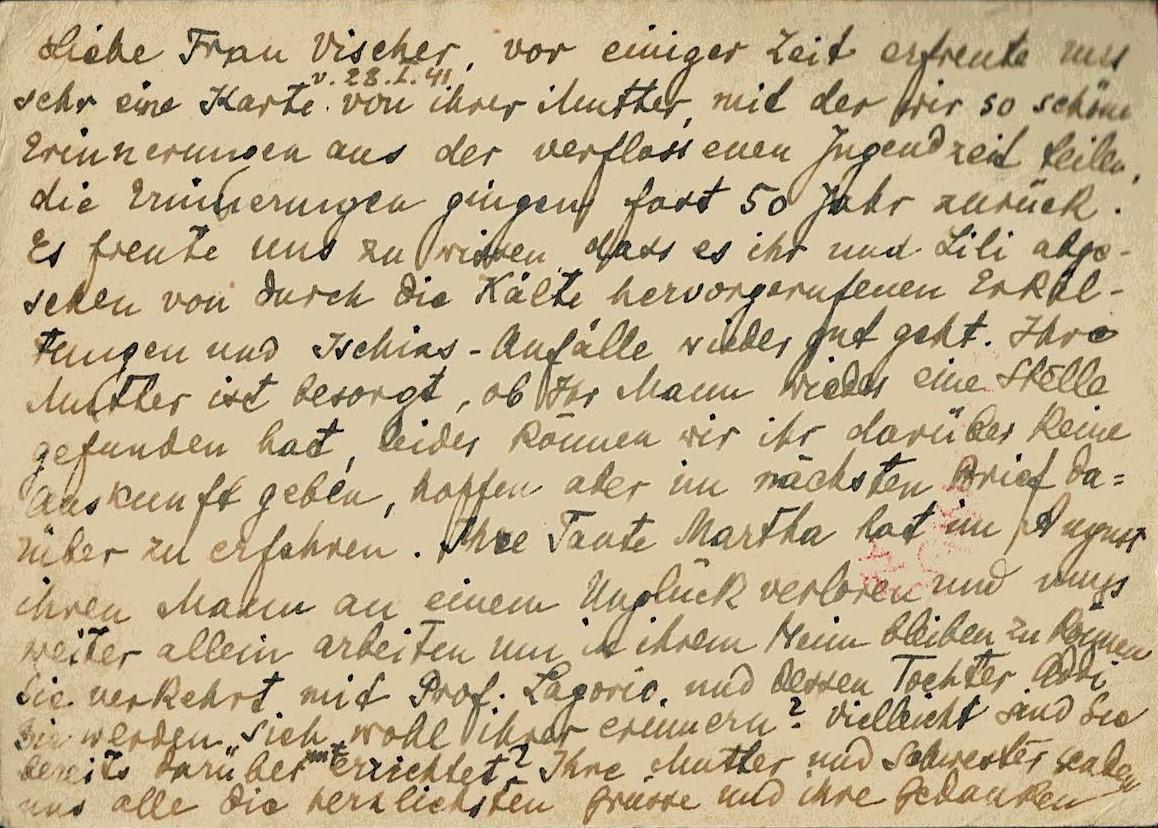 Liebe Frau Vischer, vor einiger Zeit erfreute uns
v. 28.I.41
sehr eine Karte von ihrer Mutter, mit der wir so schöne
Erinnerungen aus der verflossenen Jugendzeit teilen,
die Erinnerungen gingen fast 50 Jahr zurück.
Es freute uns zu wissen, dass es ihr und Lili abge-
sehen von durch die Kälte hervorgerufenen Erkäl-
tungen und Ischias-Anfälle wieder gut geht. Ihre
Mutter ist besorgt, ob Ihr Mann wieder eine Stelle
gefunden hat, leider können wir ihr darüber keine
Auskunft geben, hoffen aber im nächsten Brief da=
rüber zu erfahren. Ihre Tante Martha hat im August
ihren Mann an einem Unglück verloren und muss
weiter allein arbeiten um in ihrem Heim bleiben zu können
Sie verkehrt mit Prof. Lagorio, und dessen Tochter Addi,
Sie werden sich wohl ihrer erinnern? vielleicht sind Sie
bereits darüber unterrichtet? Ihre Mutter und Schwester senden
uns alle die herzlichsten Grüsse und ihre Gedanken